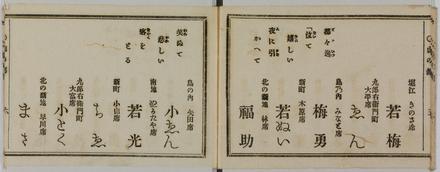 堀江 きのさ席
若梅
九郎右衛門町
大平席
ゑん
島乃内 みなと席
梅勇
新町 木原席
若ぬい
北の新地 林席
福助
嬉しい
夜に引
かへて
島の内 矢田席
小ゑん
南地
若光
新町 小山席
ちゑ
九郎右衛門町
大富席
小とく
北の新地 早川席
まさ
笑ぬて
悲しい
席を
とる